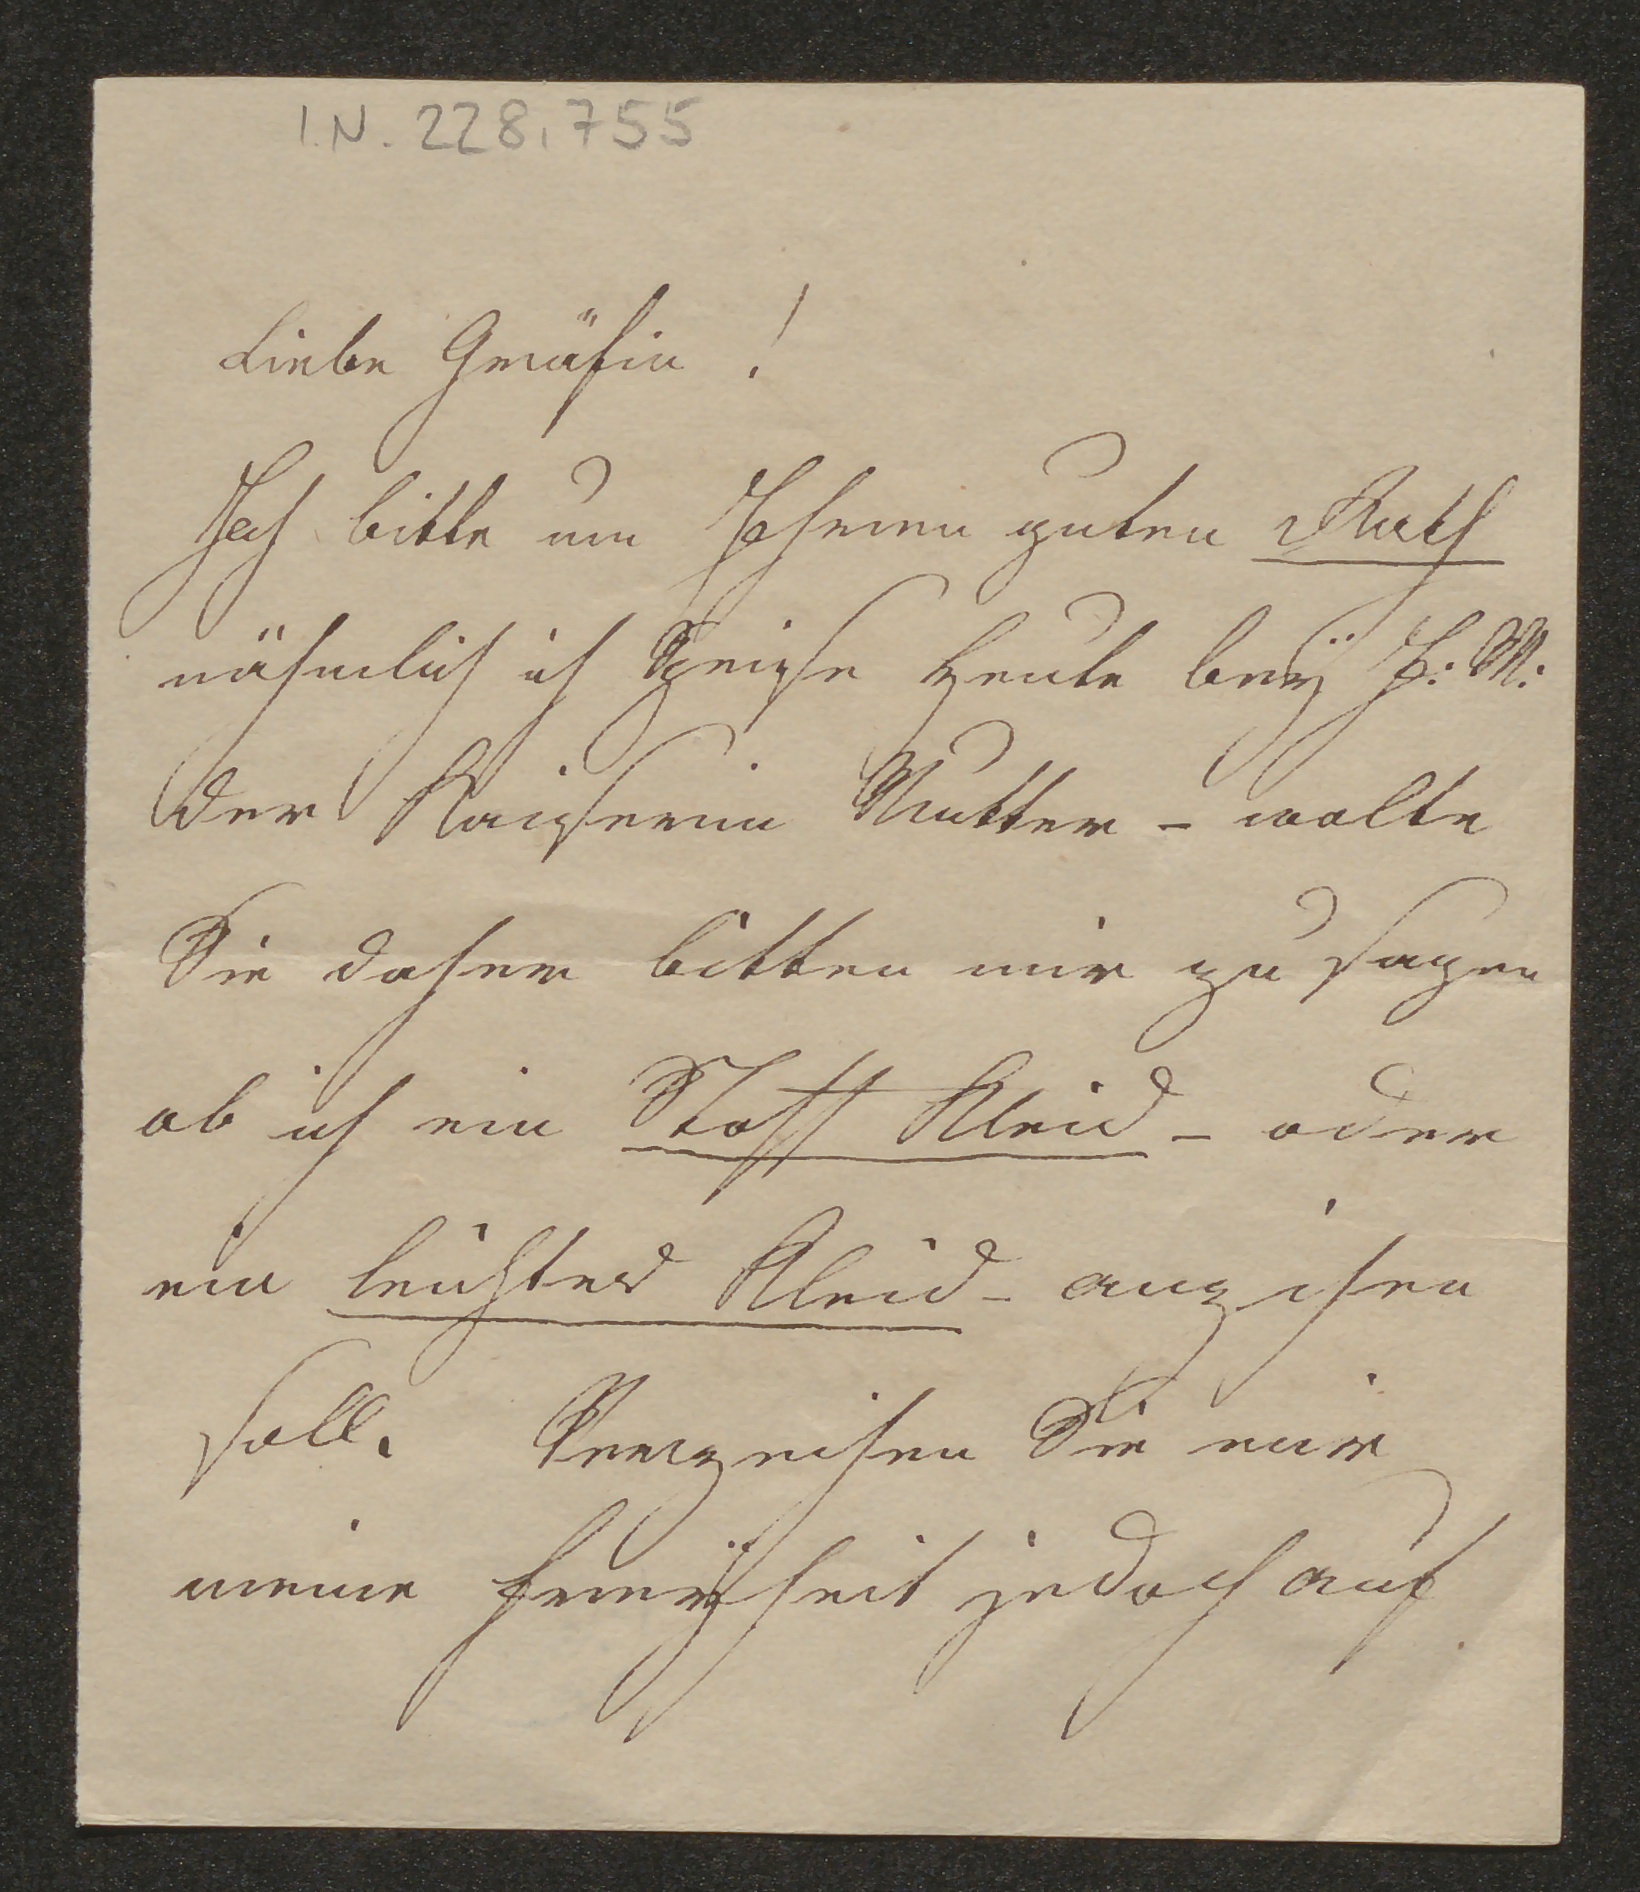 I.N. 228.755
Liebe Gräfin !
Ich bitte um Ihren guten Rath
nähmlich ich Speise heute beÿ I: M:
der Kaiserin Mutter – wolte
Sie daher bitten mir zu sagen
ob ich ein Stoff Kleid – oder
ein leichtes Kleid – anzihen
soll. Verzeihen Sie mir
meine Freÿheit jedoch auf